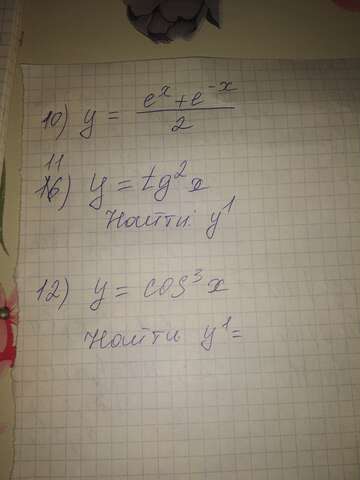 10) y = (e^x + e^-x)/2
11
16) y = tg²x
Найти y¹
12) y = cos³x
Найти y¹=